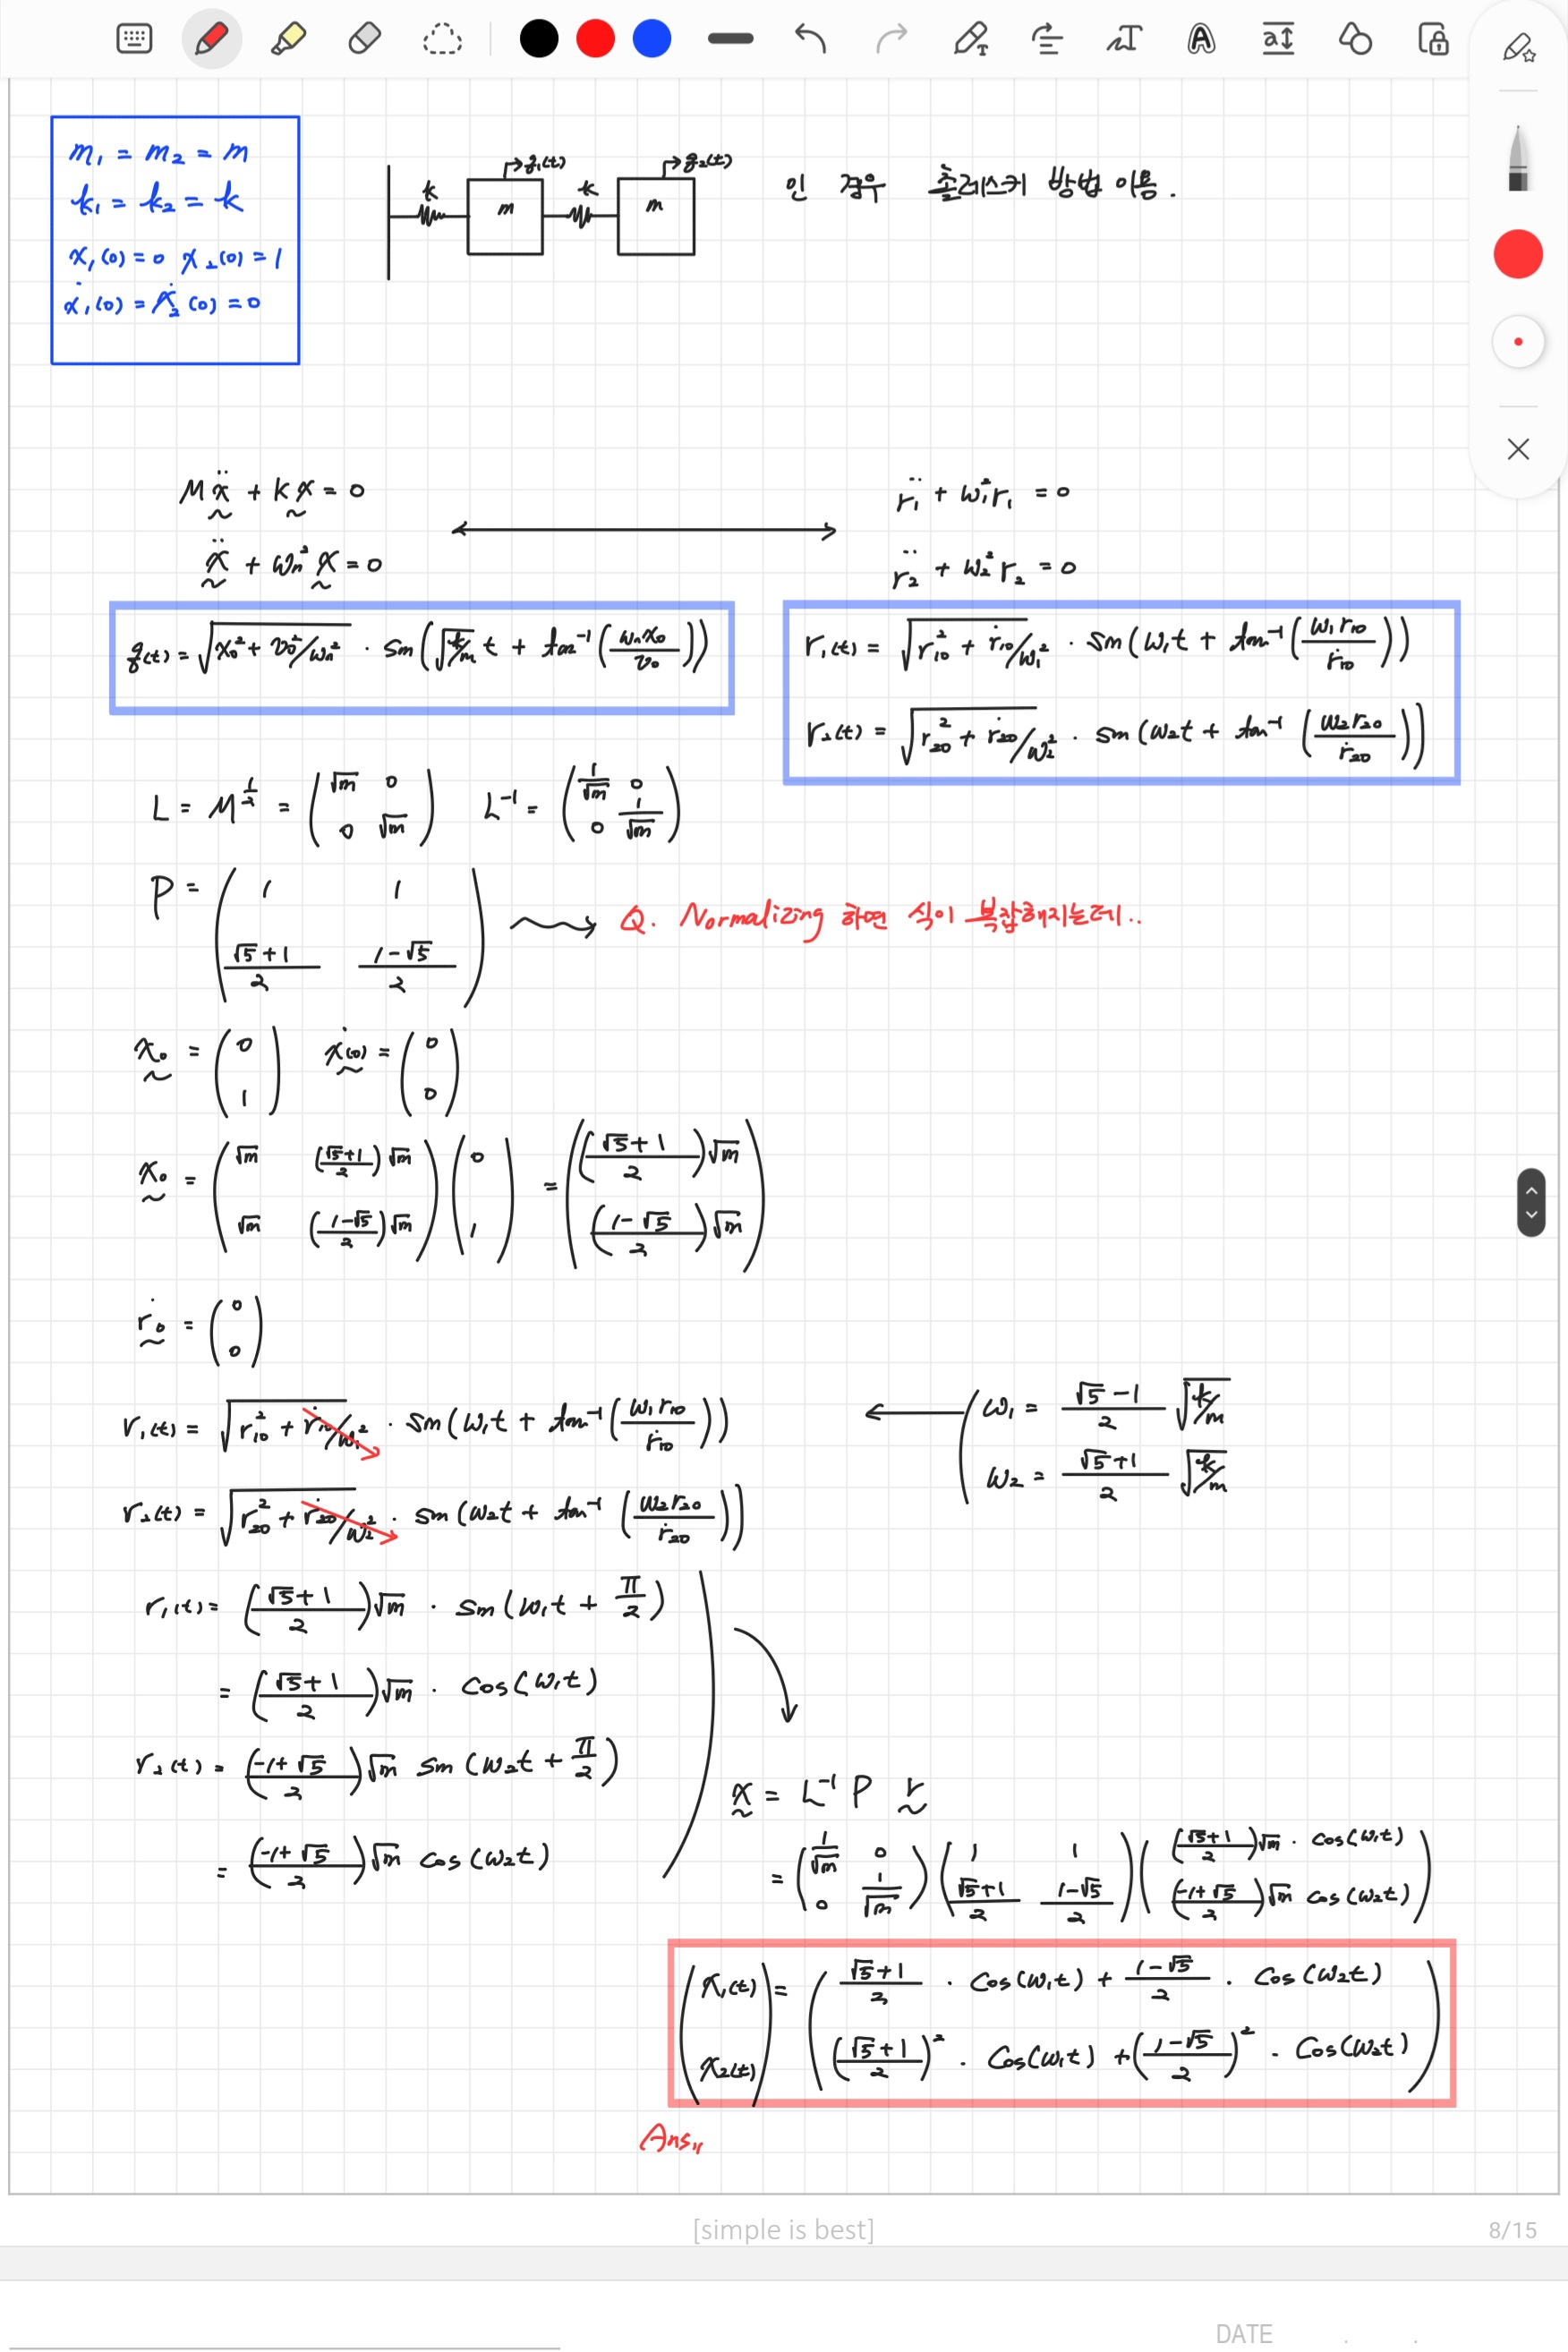 m₁ = m₂ = m
k₁ = k₂ = k
x₁(0) = 0 x₂(0) = 1
ẋ₁(0) = ẋ₂(0) = 0
k m →q₁(t) k m →q₂(t)
인 경우 촐레스키 방법 이용.
Mẍ + kx = 0
ẍ + ωn²x = 0
r̈₁ + ω₁²r₁ = 0
r̈₂ + ω₂²r₂ = 0
q(t) = √(x₀² + v₀²/ωn²) · sin(√(k/m) t + tan⁻¹(ωn x₀/v₀))
r₁(t) = √(r₁₀² + ṙ₁₀/ω₁²) · sin(ω₁t + tan⁻¹(ω₁r₁₀/ṙ₁₀))
r₂(t) = √(r₂₀² + ṙ₂₀/ω₂²) · sin(ω₂t + tan⁻¹(ω₂r₂₀/ṙ₂₀))
L = M^(1/2) = (√m 0; 0 √m) L⁻¹ = (1/√m 0; 0 1/√m)
P = (1 1; (√5+1)/2 (1-√5)/2)
Q. Normalizing 하면 식이 복잡해지는데..
x₀ = (0; 1) ẋ(0) = (0; 0)
x₀ = (√m ((√5+1)/2)√m; √m ((1-√5)/2)√m)(0; 1) = (((√5+1)/2)√m; ((1-√5)/2)√m)
ṙ₀ = (0; 0)
r₁(t) = √(r₁₀² + ṙ₁₀/ω₁²) · sin(ω₁t + tan⁻¹(ω₁r₁₀/ṙ₁₀))
r₂(t) = √(r₂₀² + ṙ₂₀/ω₂²) · sin(ω₂t + tan⁻¹(ω₂r₂₀/ṙ₂₀))
ω₁ = (√5-1)/2 √(k/m)
ω₂ = (√5+1)/2 √(k/m)
r₁(t) = ((√5+1)/2)√m · sin(ω₁t + π/2)
= ((√5+1)/2)√m · cos(ω₁t)
r₂(t) = ((-1+√5)/2)√m sin(ω₂t + π/2)
= ((-1+√5)/2)√m cos(ω₂t)
x = L⁻¹ P r
= (1/√m 0; 0 1/√m)(1 1; (√5+1)/2 (1-√5)/2)(((√5+1)/2)√m · cos(ω₁t); ((-1+√5)/2)√m cos(ω₂t))
(x₁(t); x₂(t)) = ((√5+1)/2 · cos(ω₁t) + (1-√5)/2 · cos(ω₂t); ((√5+1)/2)² · cos(ω₁t) + ((1-√5)/2)² · cos(ω₂t))
Ans,,
[simple is best]
8/15
DATE . .